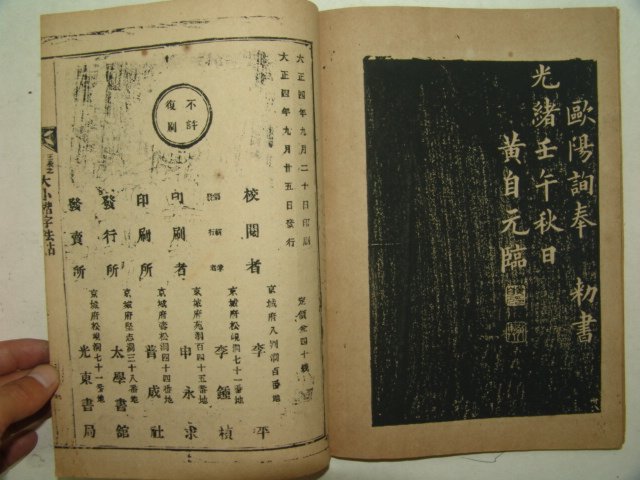 歐陽詢奉 勅書
光緒壬午秋日
黃自元臨
大正四年九月二十日印刷
大正四年九月廿五日發行
不許
復刷
校閱者 李 平
李鍾楨
京城府松峴洞七十一番地
印刷者 申永求
京城府苑洞百四十五番地
印刷所 普成社
京城府壽松洞四十四番地
發行所 太學書館
京城府堅志洞三十八番地
發賣所 光東書局
京城府松峴洞七十一番地
大小楷字法帖